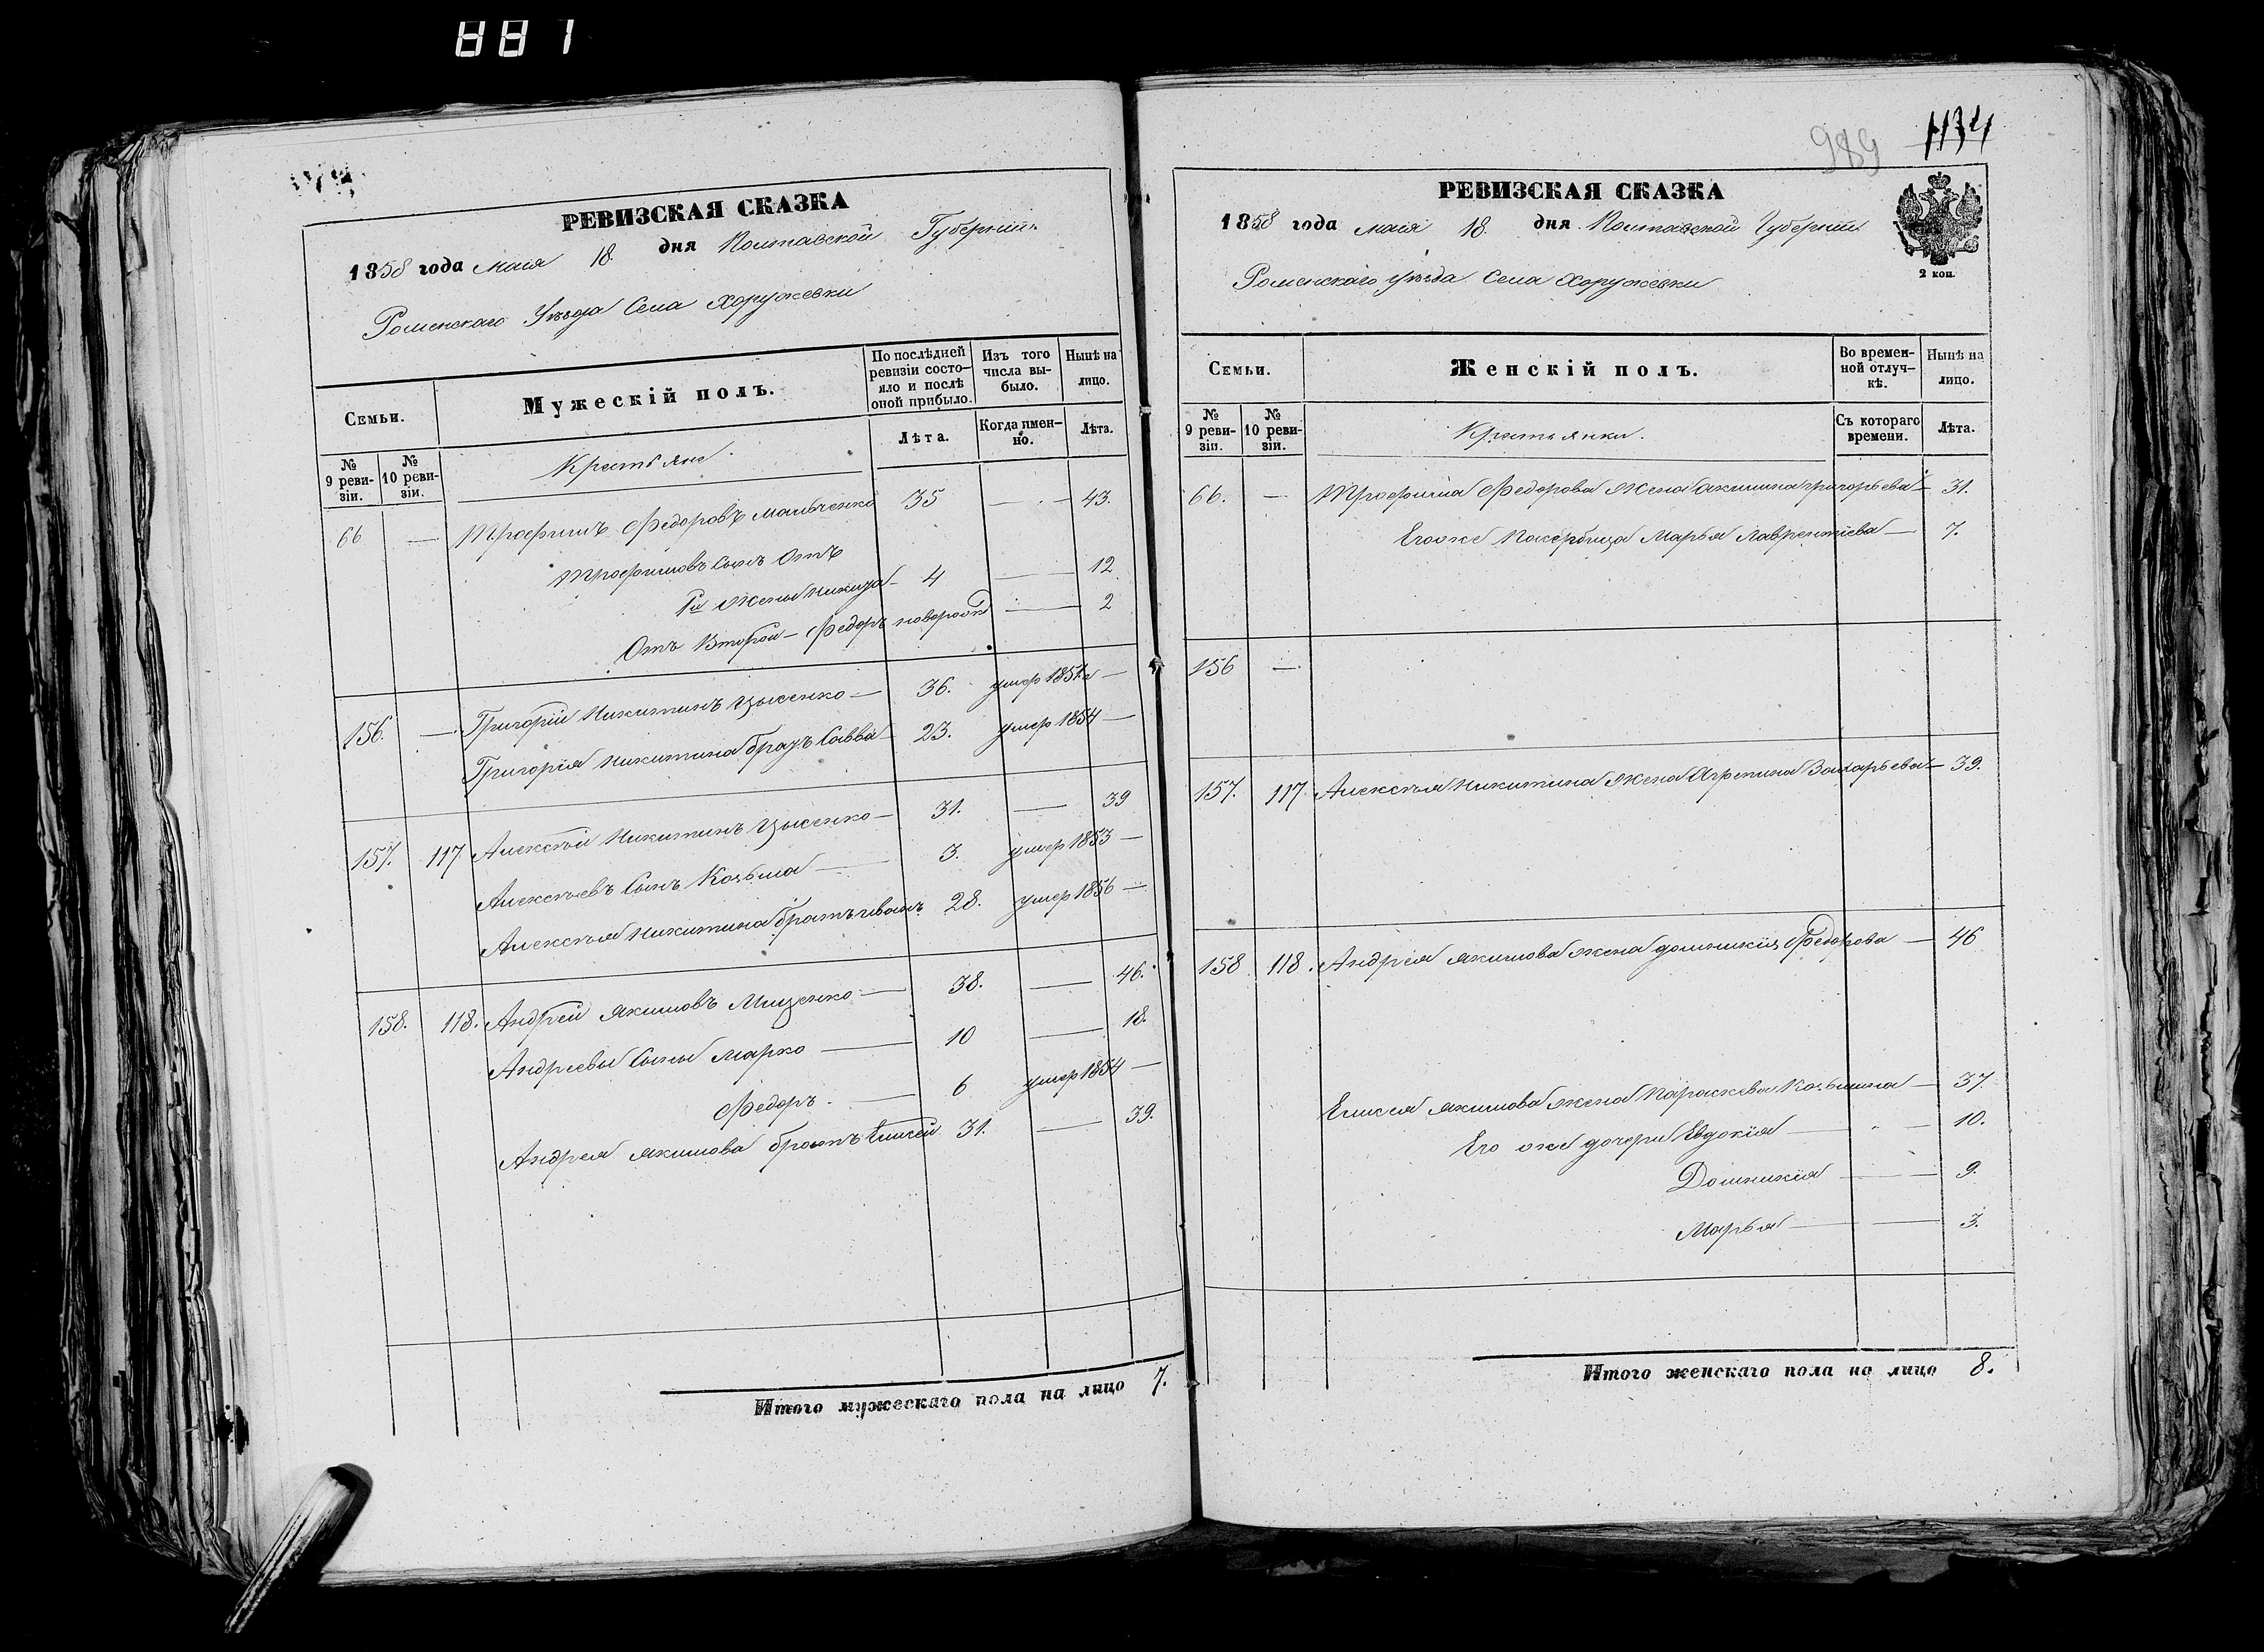 881
РЕВИЗСКАЯ СКАЗКА
1858 года мая 18. дня Полтавской Губерніи
Роменскаго Уѣзда Села Хоружевки
Семьи.
Мужескій полъ.
По послѣдней ревизіи состо-
яло и послѣ
оной прибыло.
Изъ того
числа вы-
было.
Нынѣ на
лицо.
№
9 реви-
зіи.
№
10 реви-
зіи.
Крестьяне.
Лѣта.
Когда имен-
но.
Лѣта.
66 — Трофимъ Федоровъ Мальченко 35 — 43.
Трофимовъ Сынъ Отъ
1й жены Никита 4 — 12
Отъ Второй — Федоръ новорожд — 2
156. — Григорій Никитинъ Цысенко — 36. умер 1851 —
Григорія Никитина братъ Савва 23. умер 1854 —
157. 117 Алексѣй Никитинъ Цысенко — 31. — 39
Алексѣевъ Сынъ Козьма — 3. умер 1853 —
Алексѣя Никитина братъ Иванъ 28. умер 1856 —
158. 118. Андрей Якимовъ Мищенко — 38. — 46.
Андреевы Сыны Марко — 10 — 18.
Федоръ. — 6 умер 1854 —
Андрея Якимова братъ Елисей 31. — 39.
Итого мужескаго пола на лицо 7.
989 1134
РЕВИЗСКАЯ СКАЗКА
1858 года мая 18. дня Полтавской Губерніи
2 коп.
Роменскаго Уѣзда Села Хоружевки
Семьи.
Женскій полъ.
Во времен-
ной отлуч-
кѣ.
Нынѣ на
лицо.
№
9 реви-
зіи.
№
10 реви-
зіи.
Крестьянки.
Съ котораго
времени.
Лѣта.
66. — Трофима Федорова жена Акилина Григорьева — 31.
Егоже Падчерица Марья Лаврентіева — 7.
156 —
157. 117 Алексѣя Никитина жена Агрепина Захарьева — 39.
158 118. Андрея Якимова жена Домникія Федорова — 46
Елисея Якимова жена Параскева Козьмина — 37.
Его же дочери Евдокія — 10.
Домникія — 9.
Марья — 3.
Итого женскаго пола на лицо 8.